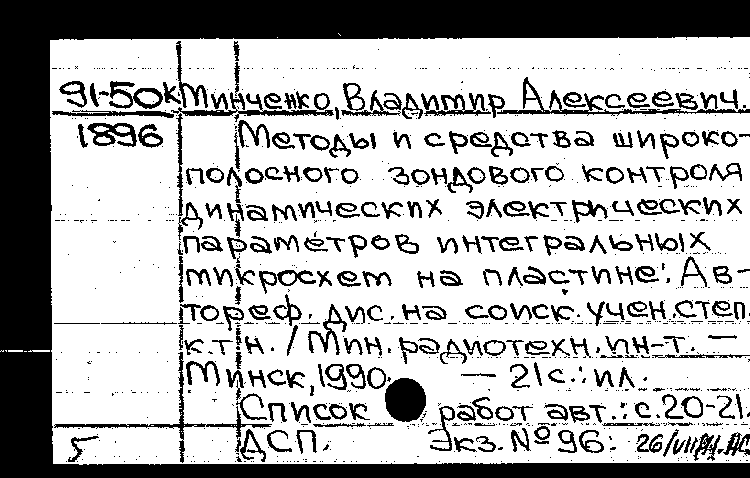 91-50к Минченко, Владимир Алексеевич.
1896 Методы и средства широко-
полосного зондового контроля
динамических электрических
параметров интегральных
микросхем на пластине: Ав-
тореф. дис. на соиск. учен. степ.
к.т.н. / Мин. радиотехн. ин-т. —
Минск, 1990. — 21 с.: ил.
Список работ авт.: с. 20-21.
5 ДСП. Экз. № 96: